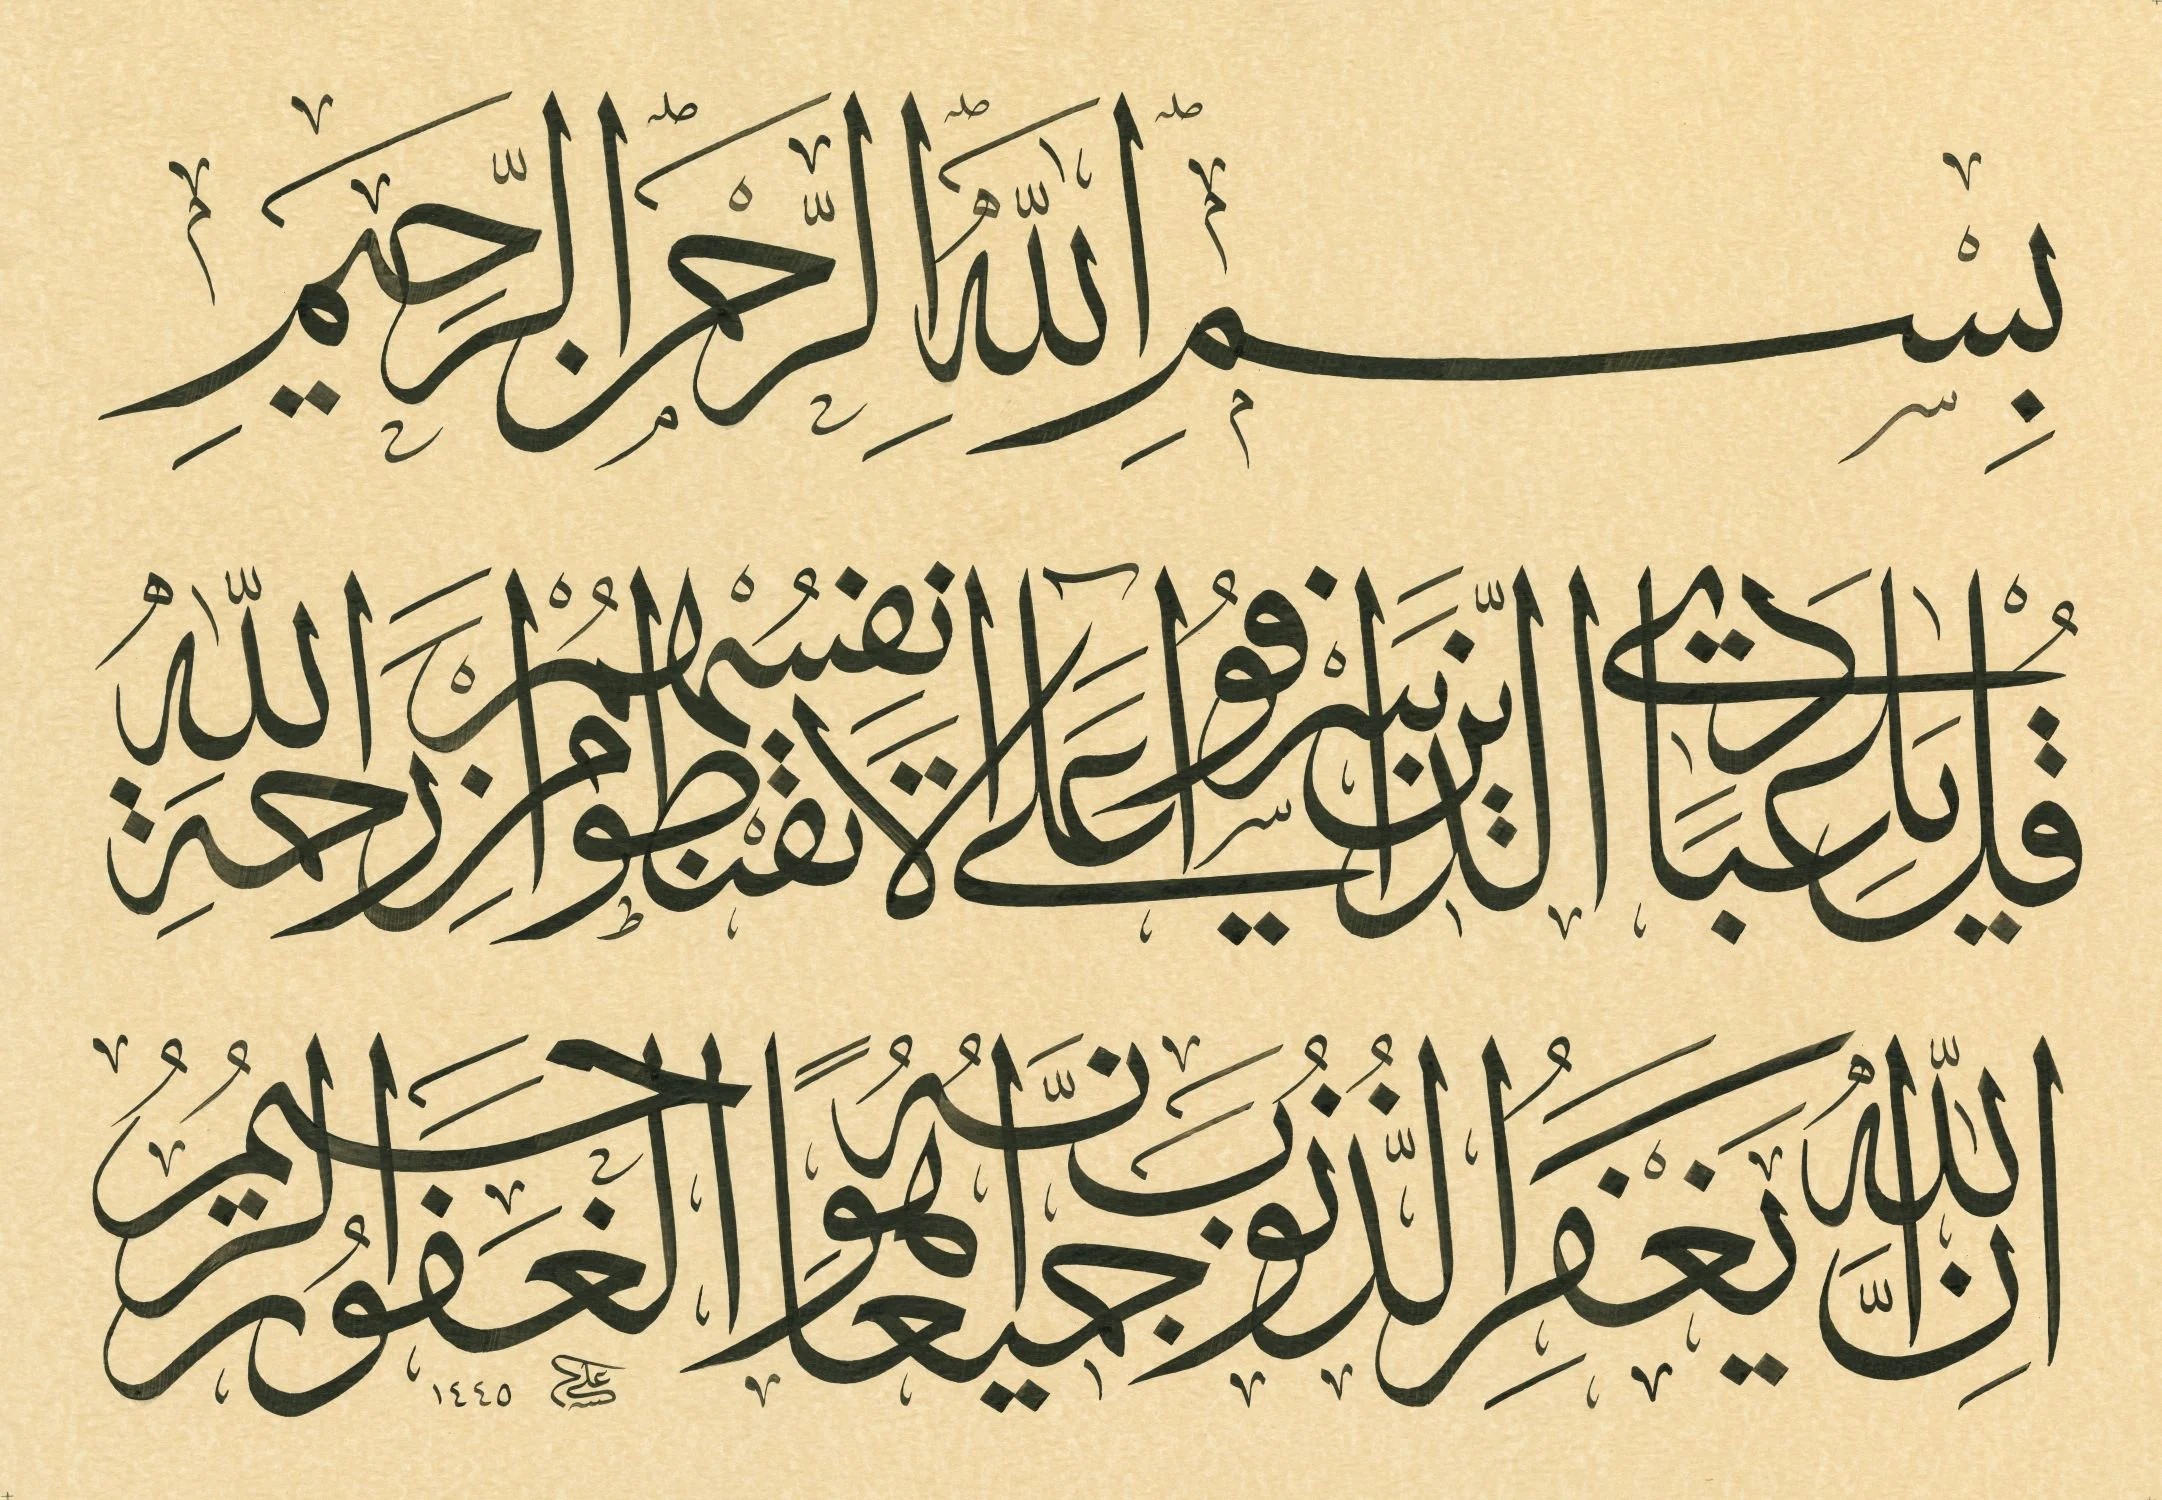 بِسْمِ اللّٰهِ الرَّحْمٰنِ الرَّحِيمِ
قُلْ يَا عِبَادِيَ الَّذِينَ أَسْرَفُوا عَلَىٰ أَنْفُسِهِمْ لَا تَقْنَطُوا مِنْ رَحْمَةِ اللّٰهِ
اِنَّ اللّٰهَ يَغْفِرُ الذُّنُوبَ جَمِيعًا اِنَّهُ هُوَ الْغَفُورُ الرَّحِيمُ
١٤٤٥